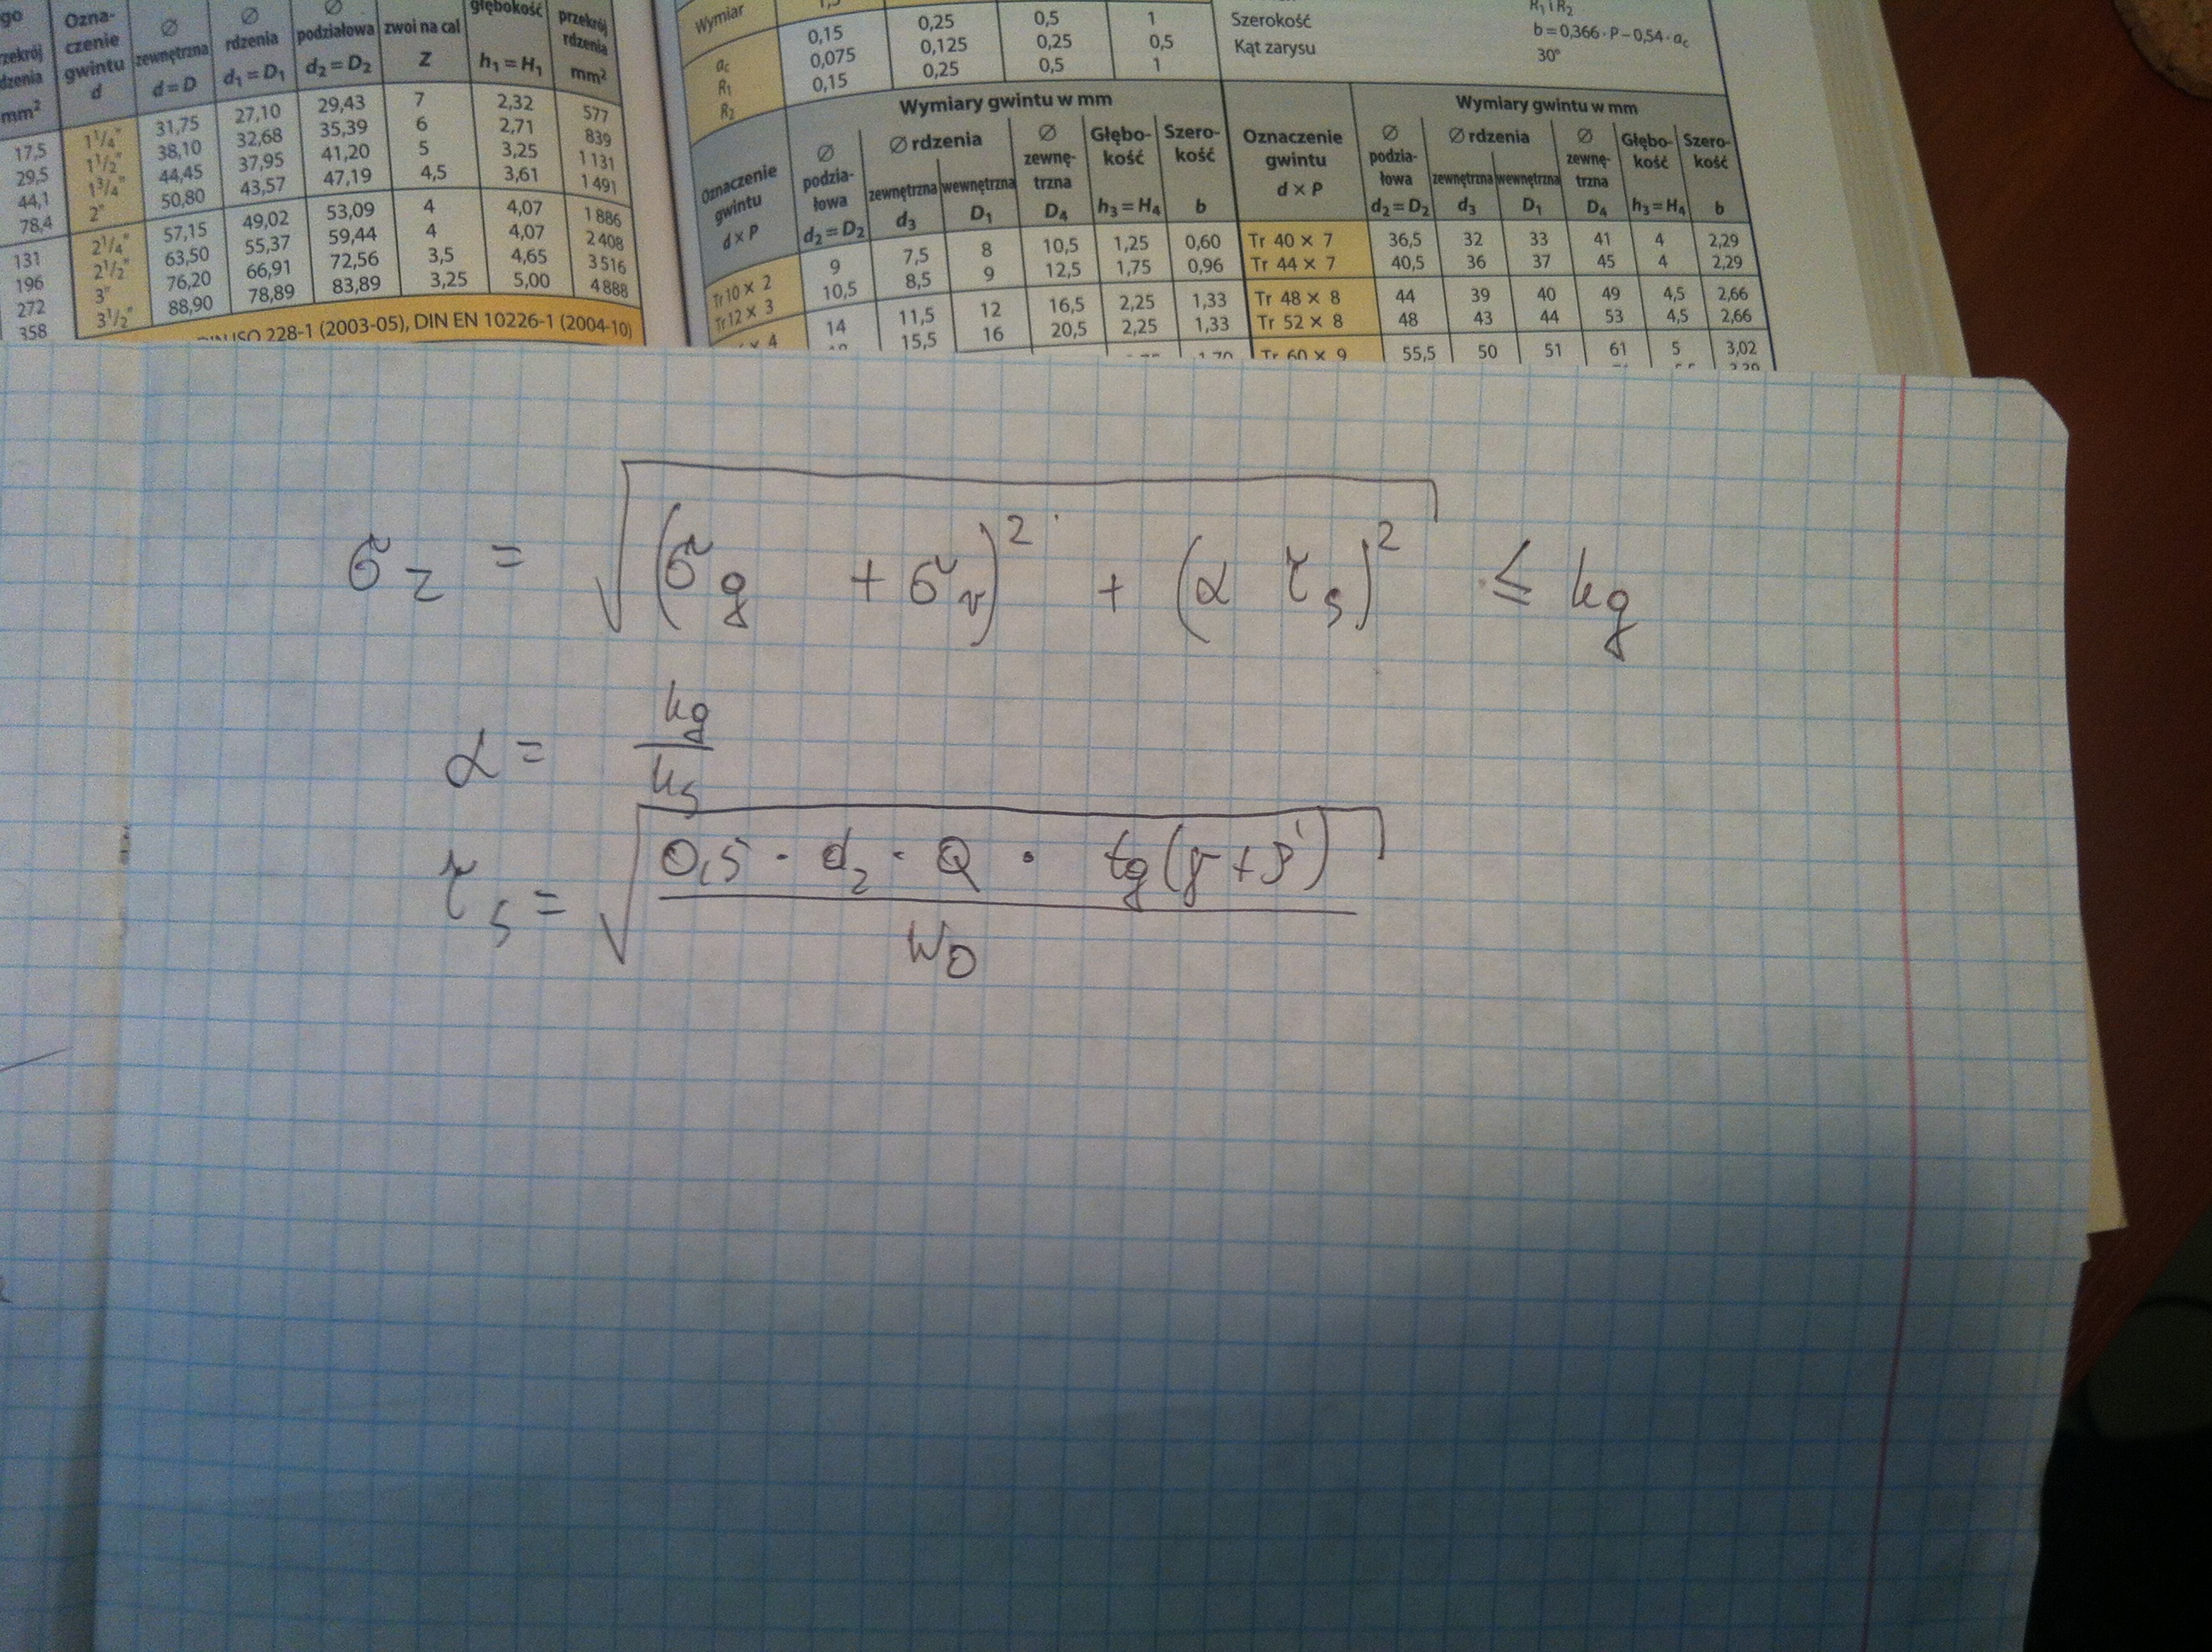 go Ozna- Ø Ø Ø zwoi na cal głębokość przekrój
czenie zewnętrzna rdzenia podziałowa rdzenia
gwintu
d d=D d₁=D₁ d₂=D₂ Z h₁=H₁ mm²
mm²
17,5 1¹/₄" 31,75 27,10 29,43 7 2,32 577
29,5 1¹/₂" 38,10 32,68 35,39 6 2,71 839
44,1 1³/₄" 44,45 37,95 41,20 5 3,25 1 131
78,4 2" 50,80 43,57 47,19 4,5 3,61 1 491
131 2¹/₄" 57,15 49,02 53,09 4 4,07 1 886
196 2¹/₂" 63,50 55,37 59,44 4 4,07 2 408
272 3" 76,20 66,91 72,56 3,5 4,65 3 516
358 3¹/₂" 88,90 78,89 83,89 3,25 5,00 4 888
ISO 228-1 (2003-05), DIN EN 10226-1 (2004-10)
Wymiar
a꜀ 0,15 0,25 0,5 1
R₁ 0,075 0,125 0,25 0,5
R₂ 0,15 0,25 0,5 1
R₁ i R₂
Szerokość b=0,366·P−0,54·a꜀
Kąt zarysu 30°
Oznaczenie gwintu d×P Wymiary gwintu w mm
Ø podzia-łowa d₂=D₂ Ø rdzenia zewnętrzna d₃ wewnętrzna D₁ Ø zewnę-trzna D₄ Głębo-kość h₃=H₄ Szero-kość b
Tr 10 × 2 9 7,5 8 10,5 1,25 0,60
Tr 12 × 3 10,5 8,5 9 12,5 1,75 0,96
× 4 14 11,5 12 16,5 2,25 1,33
15,5 16 20,5 2,25 1,33
Oznaczenie gwintu d×P Wymiary gwintu w mm
Ø podzia-łowa d₂=D₂ Ø rdzenia zewnętrzna d₃ wewnętrzna D₁ Ø zewnę-trzna D₄ Głębo-kość h₃=H₄ Szero-kość b
Tr 40 × 7 36,5 32 33 41 4 2,29
Tr 44 × 7 40,5 36 37 45 4 2,29
Tr 48 × 8 44 39 40 49 4,5 2,66
Tr 52 × 8 48 43 44 53 4,5 2,66
Tr 60 × 9 55,5 50 51 61 5 3,02
σ_z = √((σ_g + σ_r)² + (α τ_s)²) ≤ kg
α = kg/ks
τ_s = √(0,5 · d₂ · Q · tg(γ+ρ') / W₀)